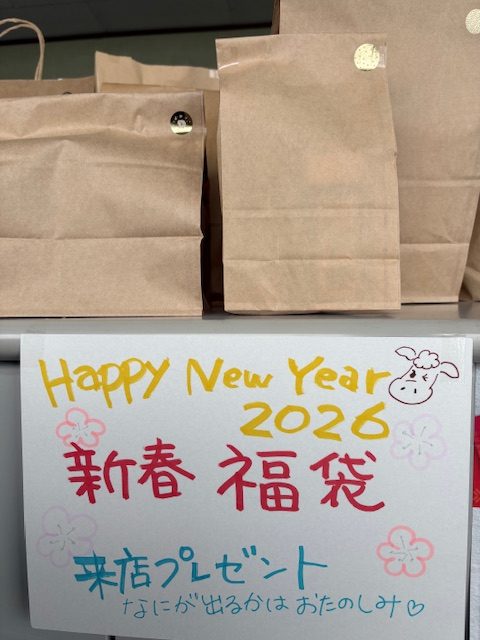 Happy New Year
2026
新春 福袋
来店プレゼント
なにが出るかは おたのしみ♡